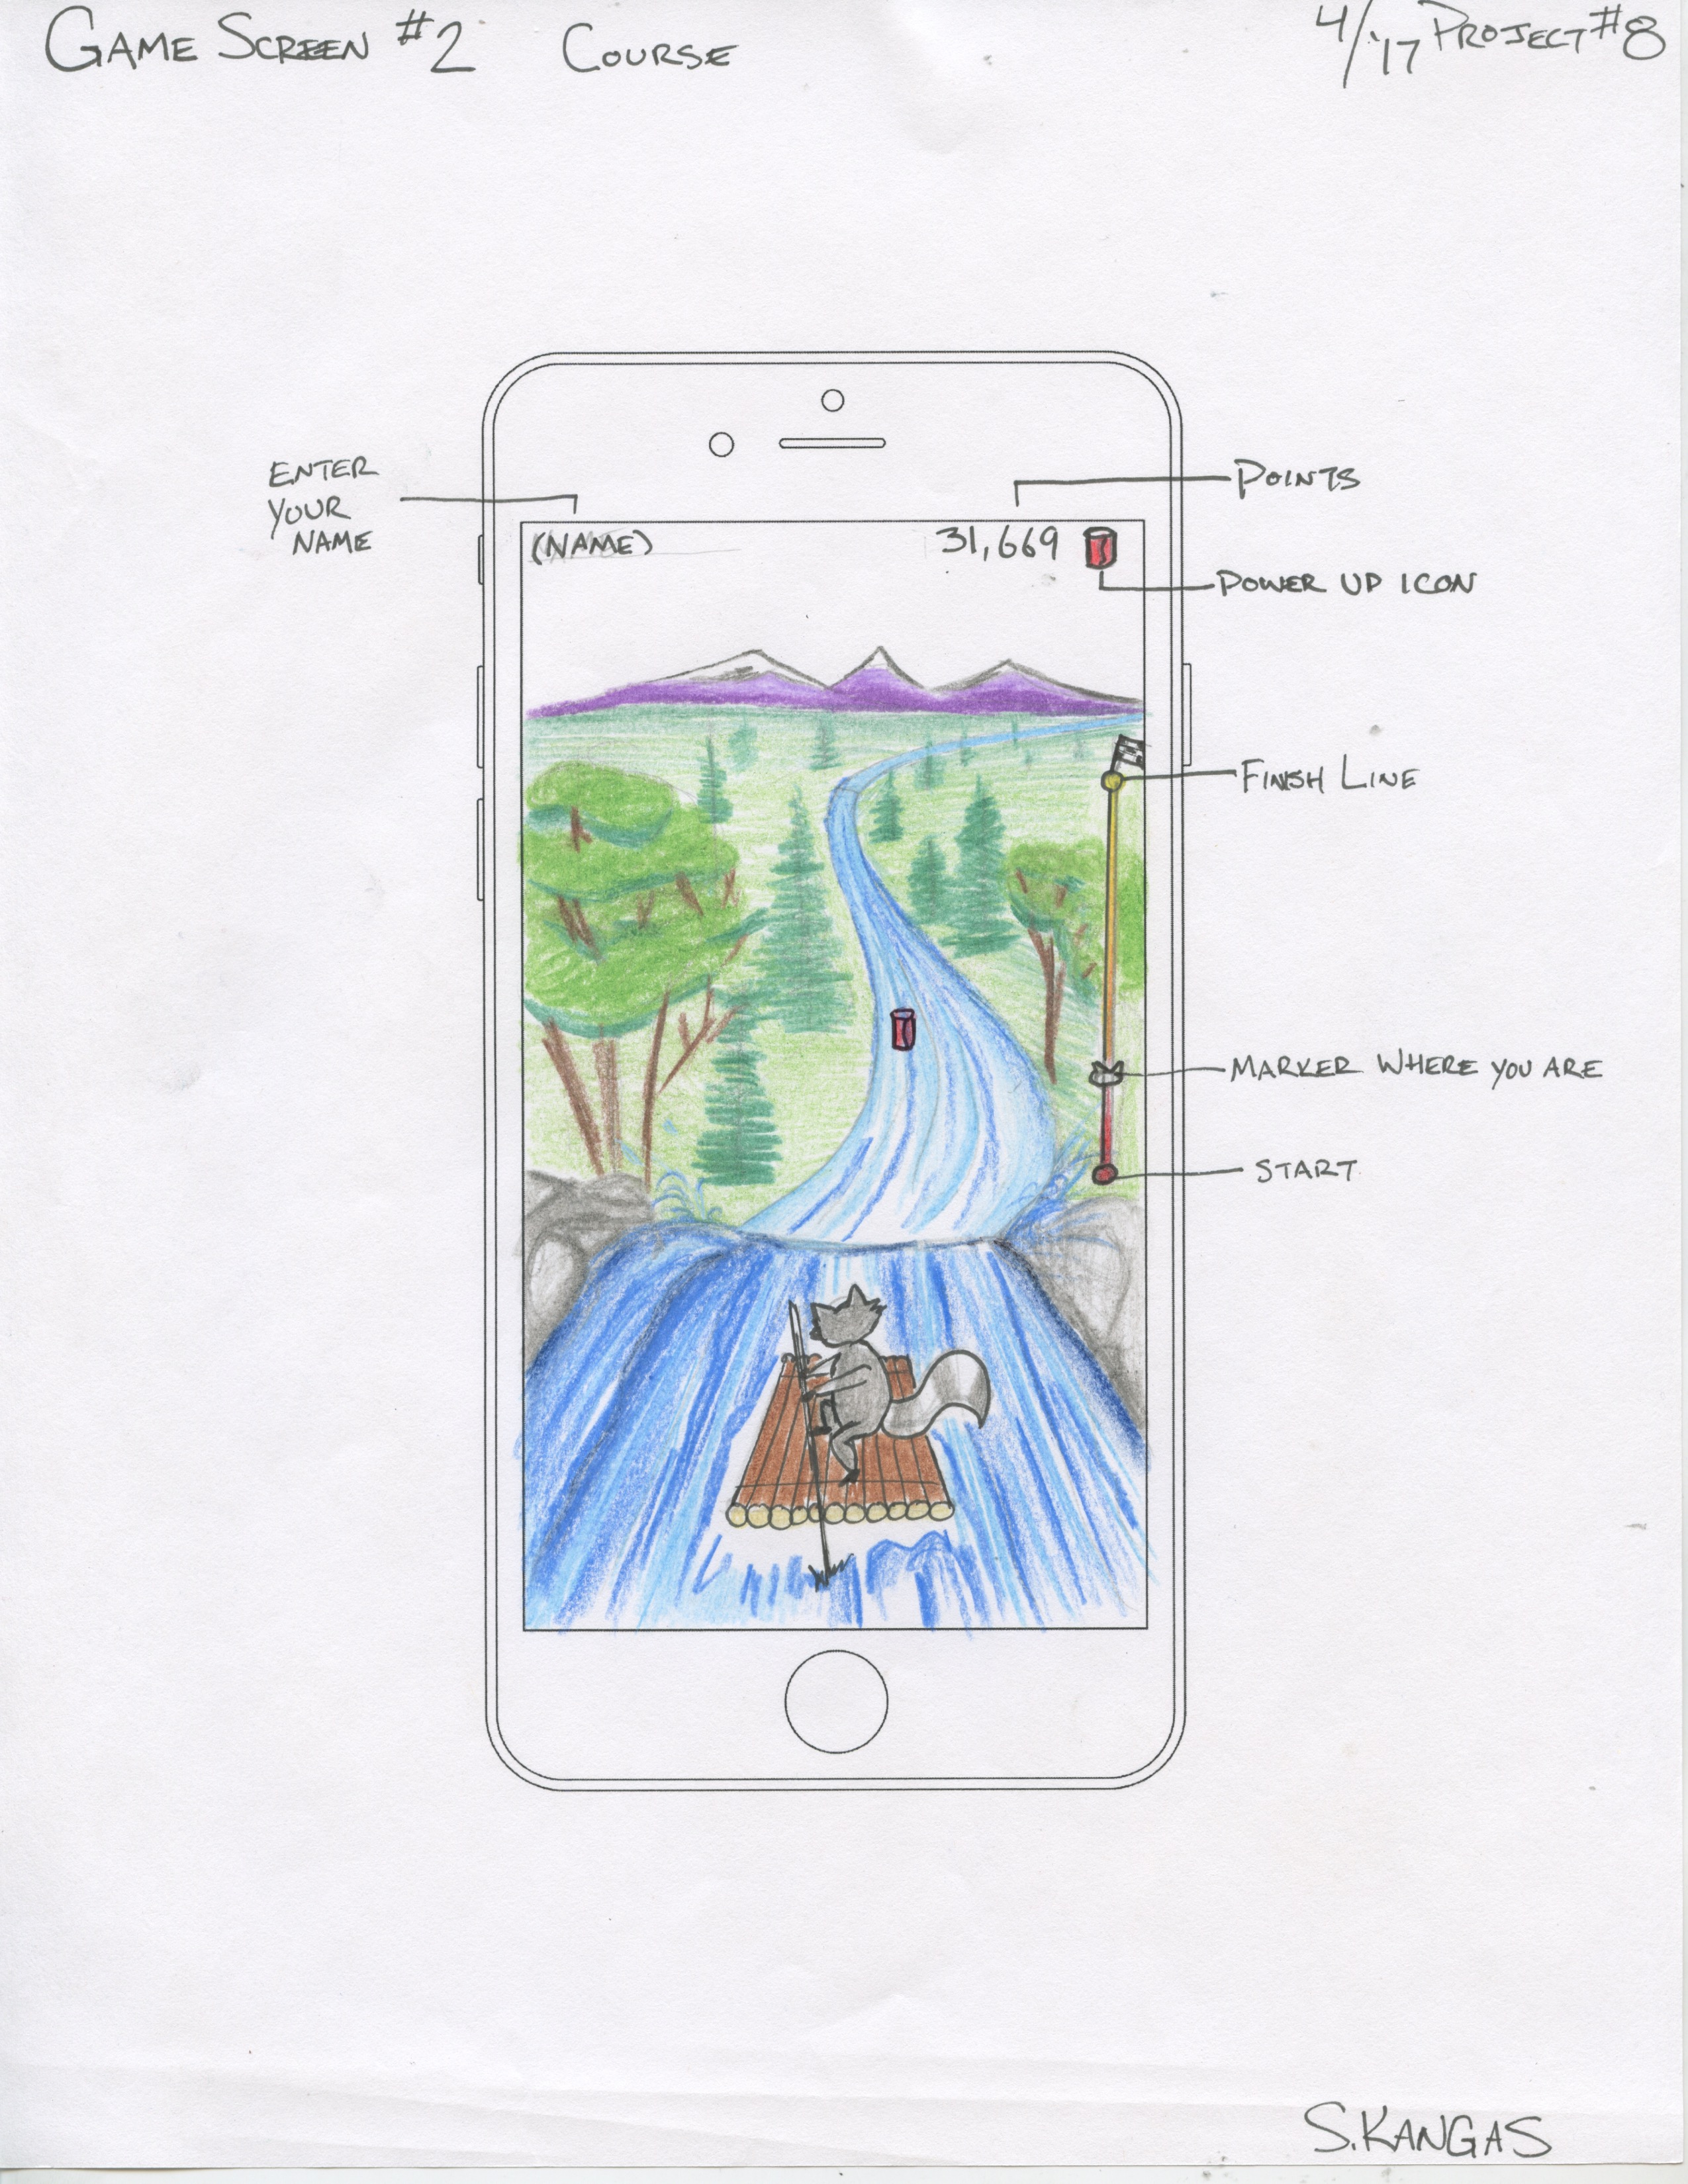 GAME SCREEN #2 COURSE
4/'17 PROJECT #8
ENTER
YOUR
NAME
POINTS
(NAME)
31,669
POWER UP ICON
FINISH LINE
MARKER WHERE YOU ARE
START
S.KANGAS